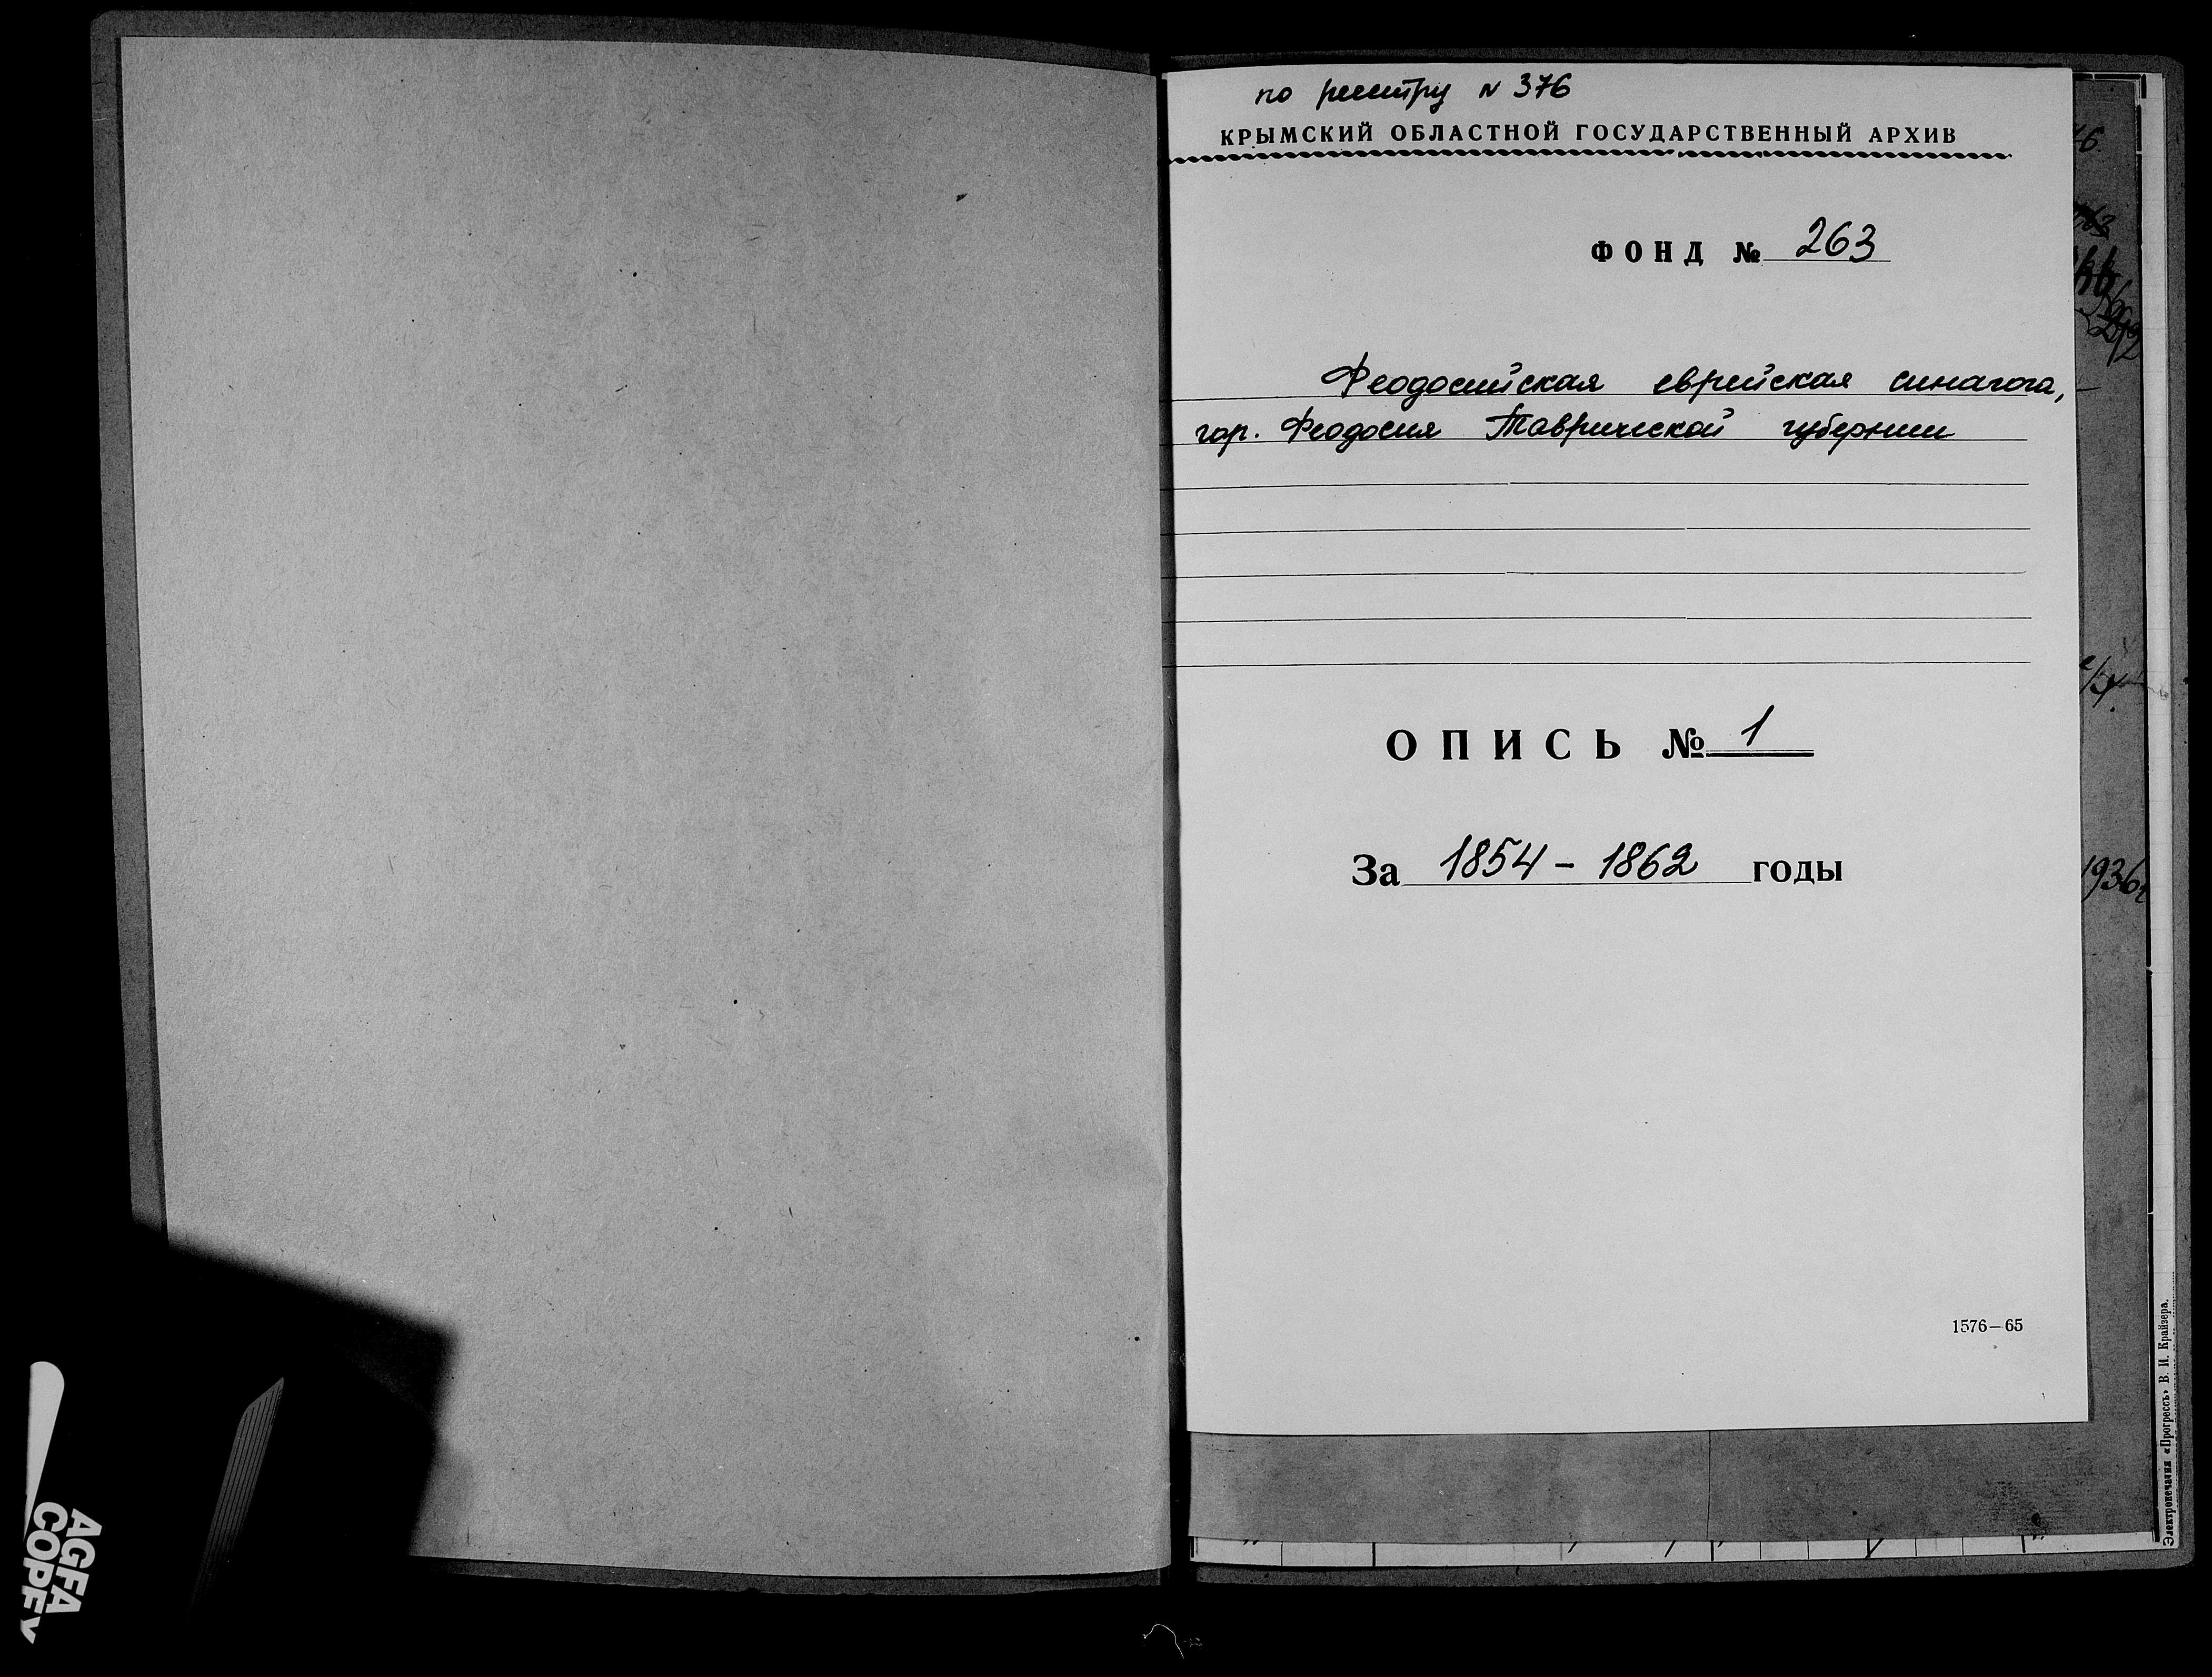 по реестру N 376
КРЫМСКИЙ ОБЛАСТНОЙ ГОСУДАРСТВЕННЫЙ АРХИВ
ФОНД № 263
Феодосийская еврейская синагога,
гор. Феодосия Таврической губернии
ОПИСЬ № 1
За 1854 – 1862 годы
1576—65
1936г
Электропечатня «Прогрессъ» В. И. Крайзера.
AGFA
COPEX